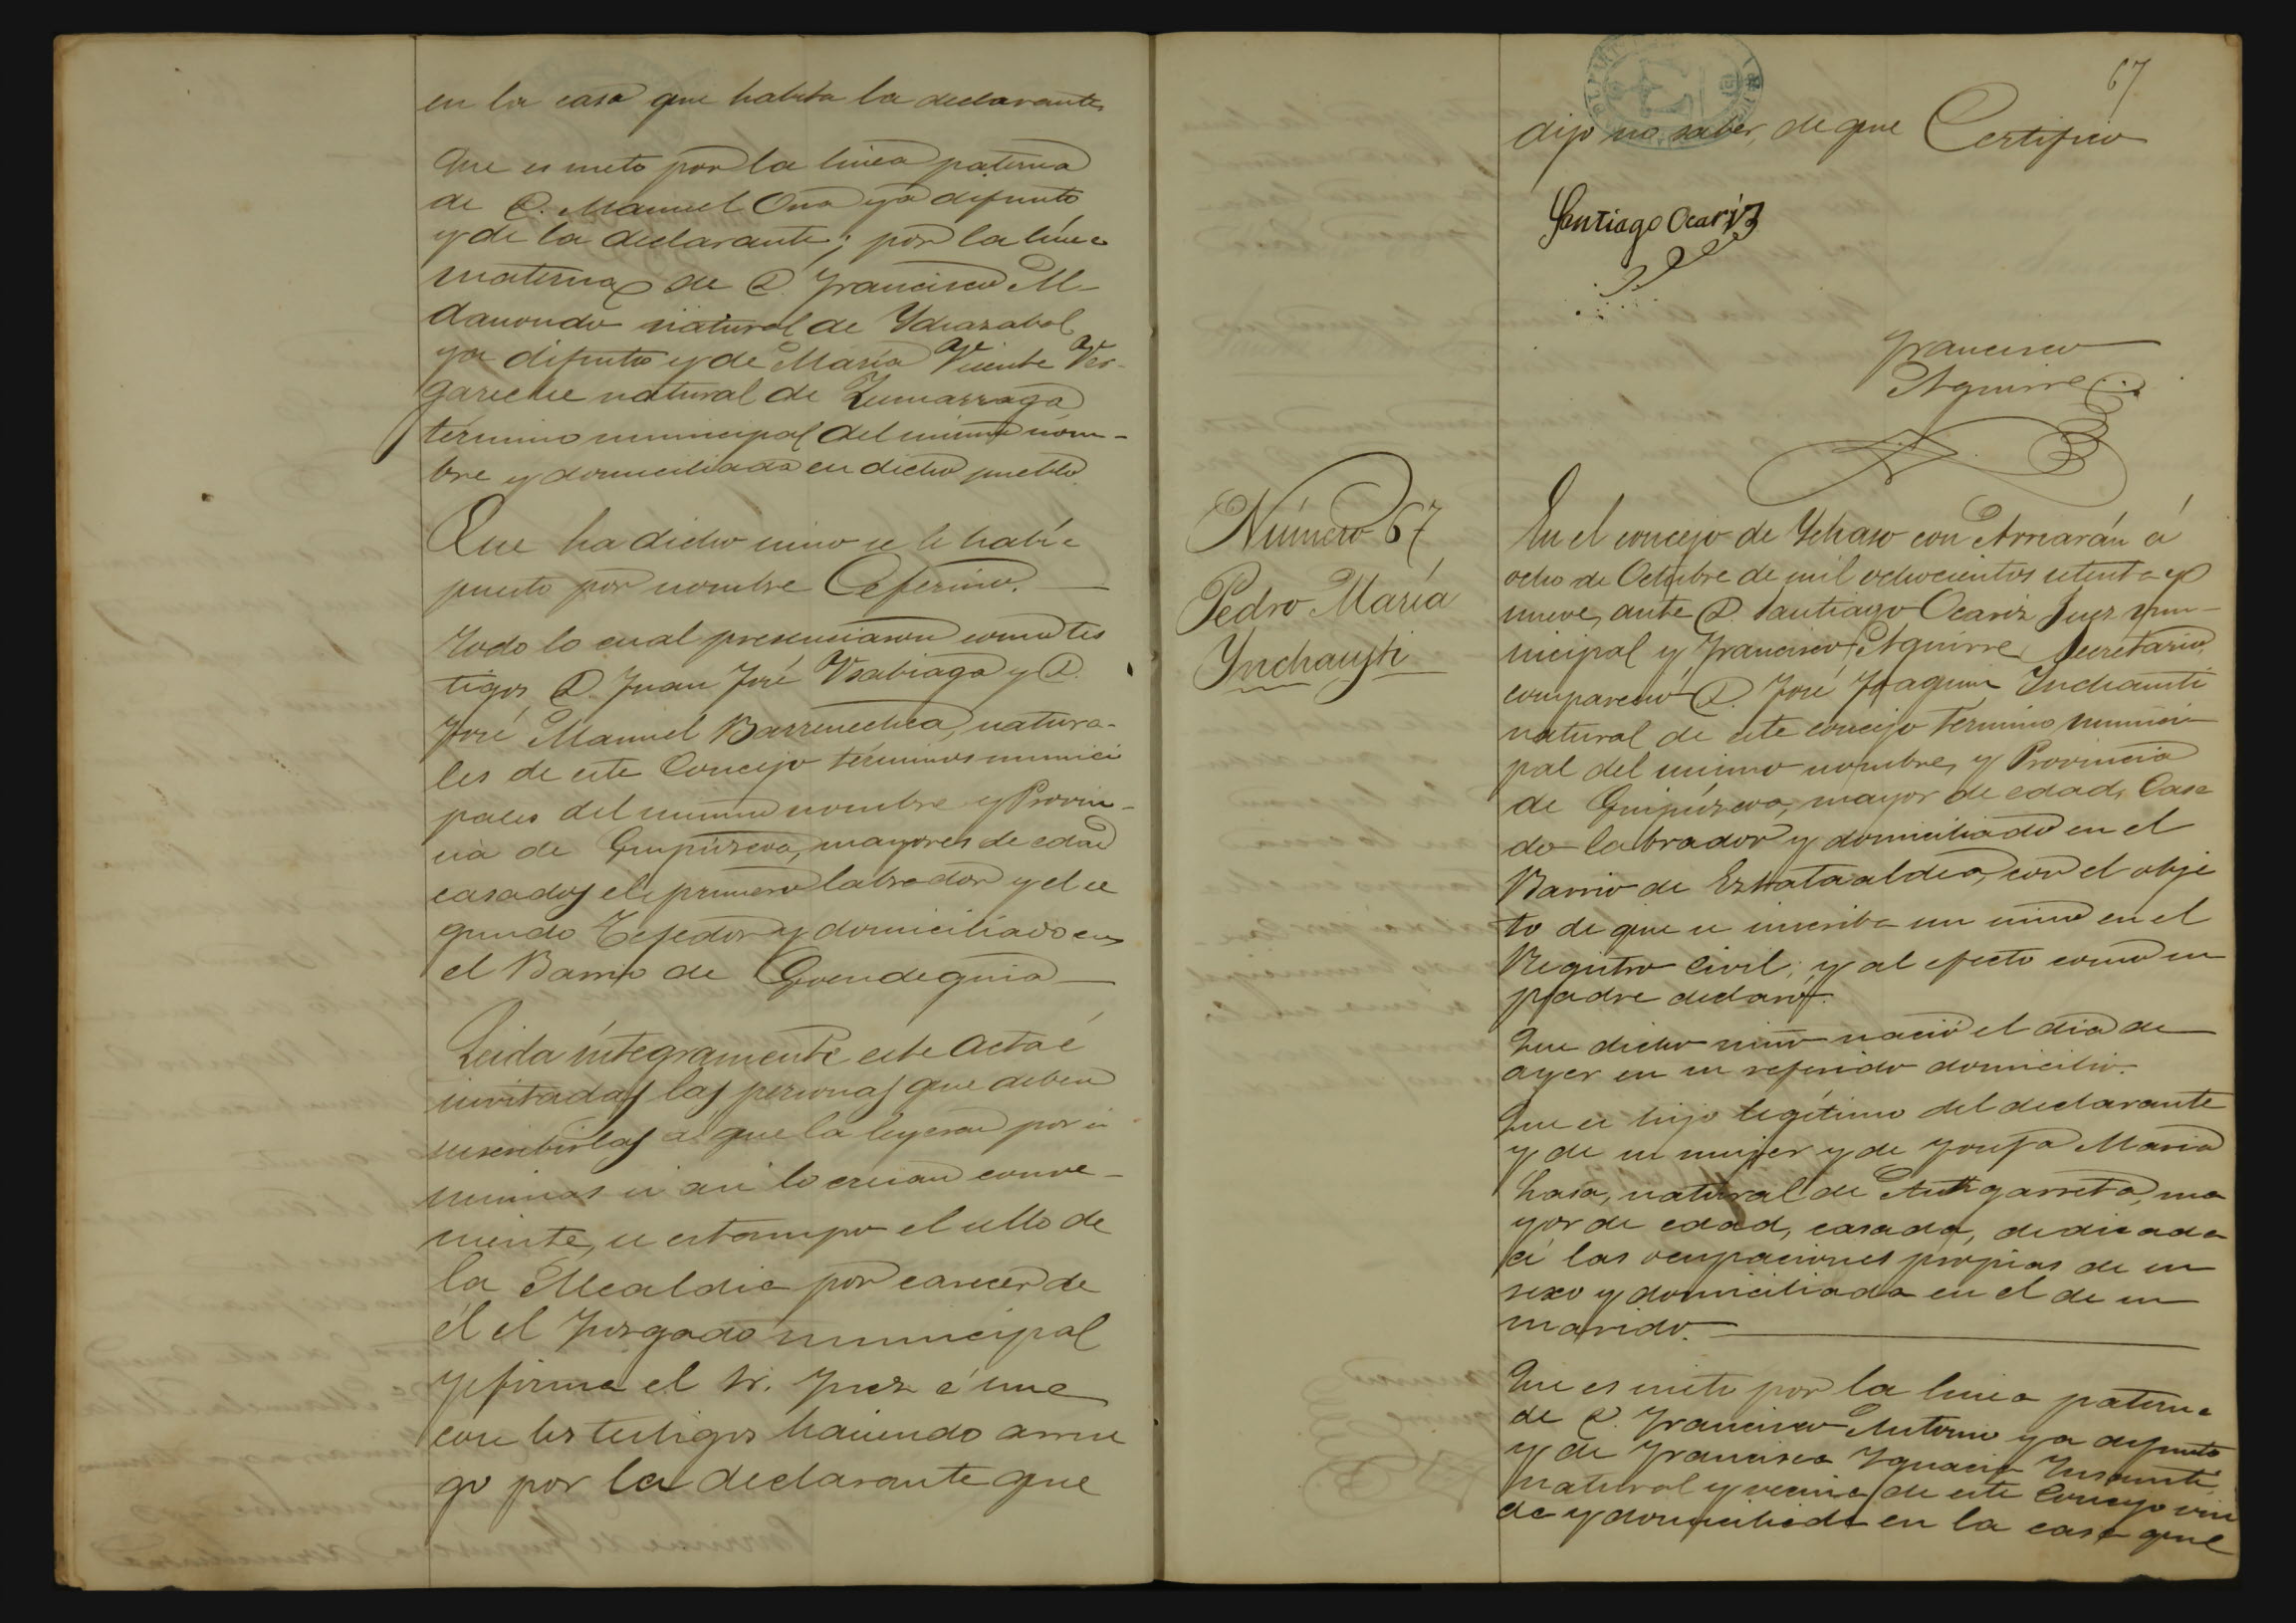 en la casa que habita la declarante
Que es nieto por la linea paterna
de D. Manuel Oria ya difunto
y de la declarante; por la línea
materna de D. Francisco M-
danondo natural de Ydiazabal
ya difunto y de María Vicente Ver-
gareche natural de Zumarraga
término municipal del mismo nom-
bre y domiciliada en dicho pueblo
Que ha dicho niño se le había
puesto por nombre Ceferino.
Todo lo cual presenciaron como tes
tigos D. Juan José Usabiaga y D.
José Manuel Barrenechea, natura-
les de este Concejo términos munici
pales del mismo nombre y Provin-
cia de Guipúzcoa, mayores de edad
casados el primero labrador y el se
gundo Tejedor y domiciliados en
el Barrio de Goendeguia
Leida íntegramente este acta é
invitadas las personas que deben
suscribirlas a que la leyeran por si
mismas si asi lo creian conve-
niente, se estampo el sello de
la Alcaldia por carecer de
él el Juzgado municipal
y firma el Sr. Juez é une
con los testigos haciendo arrue
go por la declarante que
67
dijo no saber, de que Certifico
Santiago Ocariz
Francisco
Aguirre
Número 67
Pedro María
Ynchausti
En el concejo de Ychaso con Arriarán á
ocho de Octubre de mil ochocientos setenta y
nueve, ante D. Santiago Ocariz Juez mu-
nicipal y Francisco Aguirre Secretario,
compareció D. José Joaquin Ynchausti
natural de este concejo termino munici
pal del mismo nombre, y Provincia
de Guipúzcoa, mayor de edad, Casa
do labrador y domiciliado en el
Barrio de aldea, con el obje
to de que se inscriba un niño en el
Registro Civil; y al efecto como su
padre declaró.
Que dicho niño nació el dia de
ayer en su referido domicilio.
Que es hijo legítimo del declarante
y de su mujer y de Josefa Maria
Lasa, natural de Astigarreta, ma
yor de edad, casada, dedicada
á las ocupaciones propias de su
sexo y domiciliada en el de su
marido.
Que es nieto por la linea paterna
de D. Francisco Antonio ya difunto
y de Francisca Ygnacia Insausti
natural y vecina de este Concejo viu
da y domiciliada en la casa que